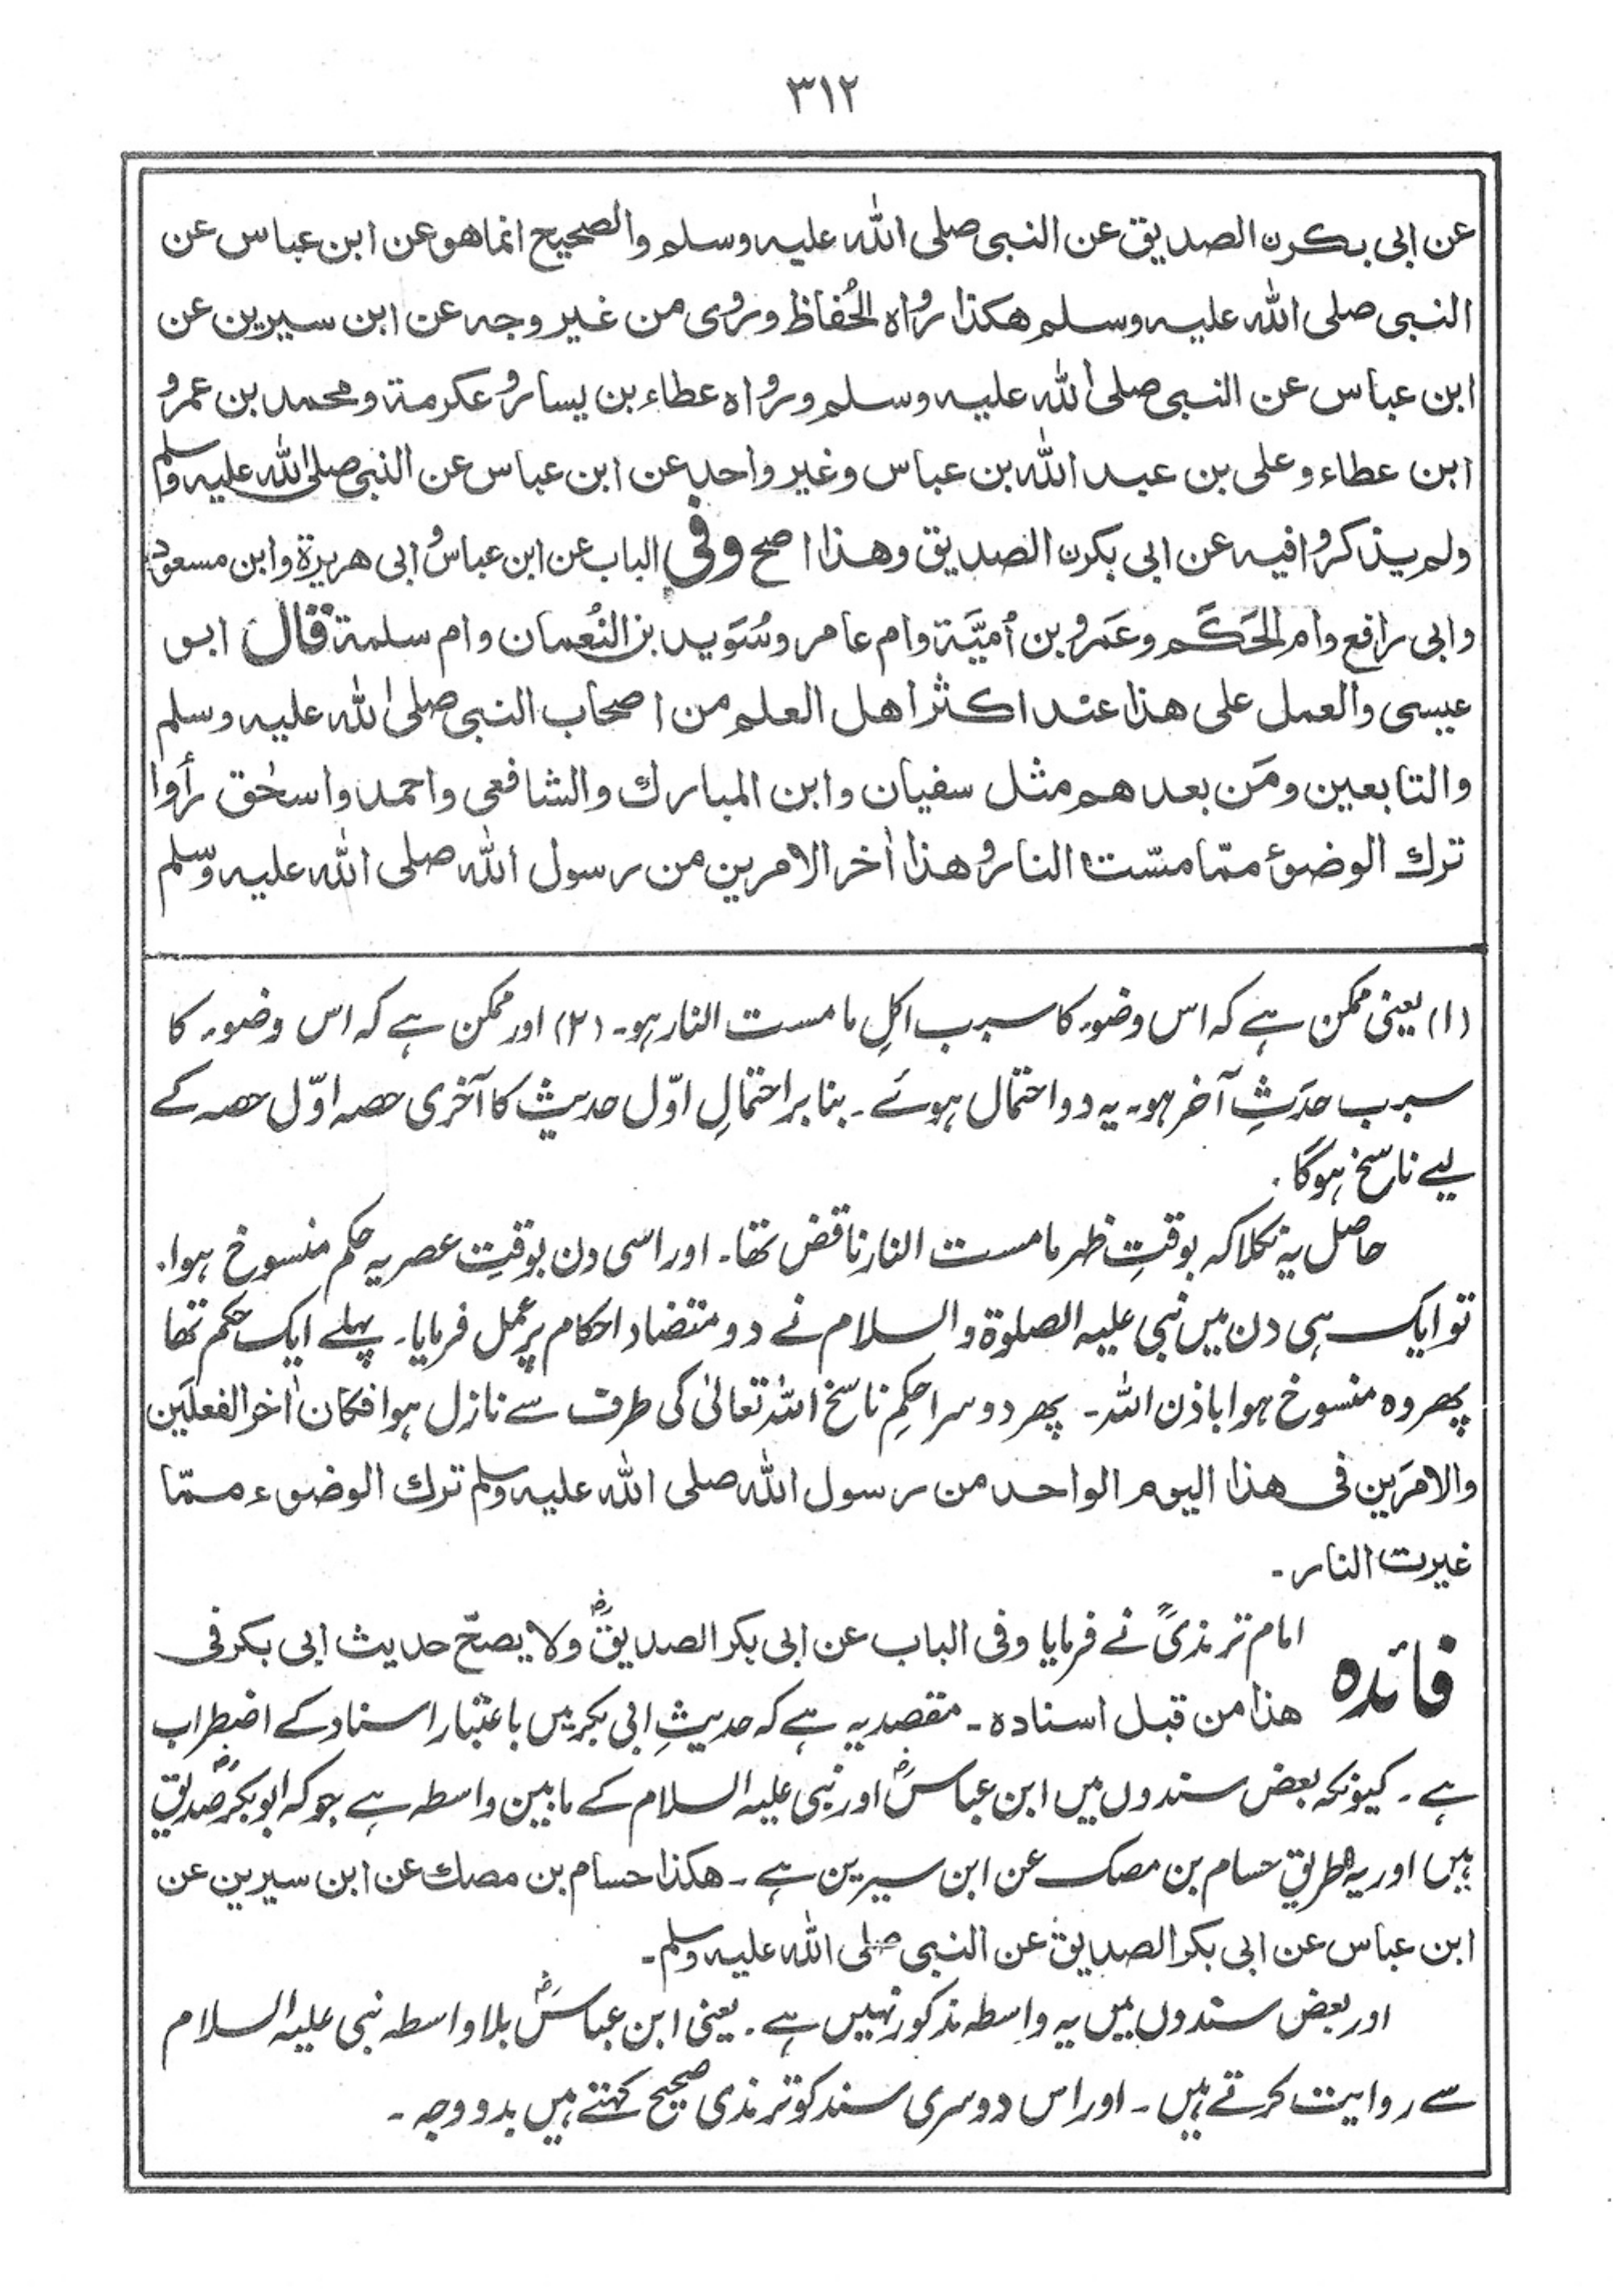 ۳۱۲
عن ابی بکرن الصدیق عن النبی صلی اللہ علیہ وسلم والصحیح انما هو عن ابن عباس عن
النبی صلی اللہ علیہ وسلم هکذا رواه الحُفاظ وروی من غیر وجه عن ابن سیرین عن
ابن عباس عن النبی صلی اللہ علیہ وسلم ورواه عطاء بن یسار وعکرمة ومحمد بن عمرو
ابن عطاء وعلی بن عبد اللہ بن عباس وغیر واحد عن ابن عباس عن النبی صلی اللہ علیہ وسلم
ولم یذکروا فیه عن ابی بکرن الصدیق وهذا اصح وفی الباب عن ابن عباس وابی هریرة وابن مسعود
وابی رافع وام الحَکَم وعَمرو بن اُمیَّة وام عامر وسُوَید بن النُعمان وام سلمة قال ابو
عیسی والعمل علی هذا عند اکثر اهل العلم من اصحاب النبی صلی اللہ علیہ وسلم
والتابعین ومَن بعدهم مثل سفیان وابن المبارك والشافعی واحمد واسحٰق رأوا
ترك الوضوئ ممّا مسّت النار وهذا اٰخر الامرین من رسول اللہ صلی اللہ علیہ وسلم
(۱) یعنی ممکن ہے کہ اس وضوء کا سبب اکلِ ما مست النار ہو۔ (۲) اور ممکن ہے کہ اس وضوء کا
سبب حدَثِ آخر ہو۔ یہ دو احتمال ہوئے۔ بنا بر احتمالِ اوّل حدیث کا آخری حصہ اوّل حصہ کے
لیے ناسخ ہوگا۔
حاصل یہ نکلا کہ بوقتِ ظہر ما مست النار ناقض تھا۔ اور اسی دن بوقتِ عصر یہ حکم منسوخ ہوا۔
تو ایک ہی دن میں نبی علیہ الصلوٰۃ والسلام نے دو متضاد احکام پر عمل فرمایا۔ پہلے ایک حکم تھا
پھر وہ منسوخ ہوا باذن اللہ۔ پھر دوسرا حکمِ ناسخ اللہ تعالیٰ کی طرف سے نازل ہوا فکان اٰخر الفعلَین
والامرَین فی هذا الیوم الواحد من رسول اللہ صلی اللہ علیہ وسلم ترك الوضوء ممّا
غیرت النار۔
فائدہ
امام ترمذیؒ نے فرمایا وفی الباب عن ابی بکر الصدیقؓ ولا یصحّ حدیث ابی بکر فی
هذا من قبل اسناده۔ مقصد یہ ہے کہ حدیثِ ابی بکر میں باعتبار اسناد کے اضطراب
ہے۔ کیونکہ بعض سندوں میں ابن عباسؓ اور نبی علیہ السلام کے مابین واسطہ ہے جو کہ ابوبکر صدیقؓ
ہیں اور یہ طریقِ حسام بن مصک عن ابن سیرین ہے۔ هکذا حسام بن مصك عن ابن سیرین عن
ابن عباس عن ابی بکر الصدیق عن النبی صلی اللہ علیہ وسلم۔
اور بعض سندوں میں یہ واسطہ مذکور نہیں ہے۔ یعنی ابن عباسؓ بلا واسطہ نبی علیہ السلام
سے روایت کرتے ہیں۔ اور اس دوسری سند کو ترمذی صحیح کہتے ہیں بدو وجہ۔